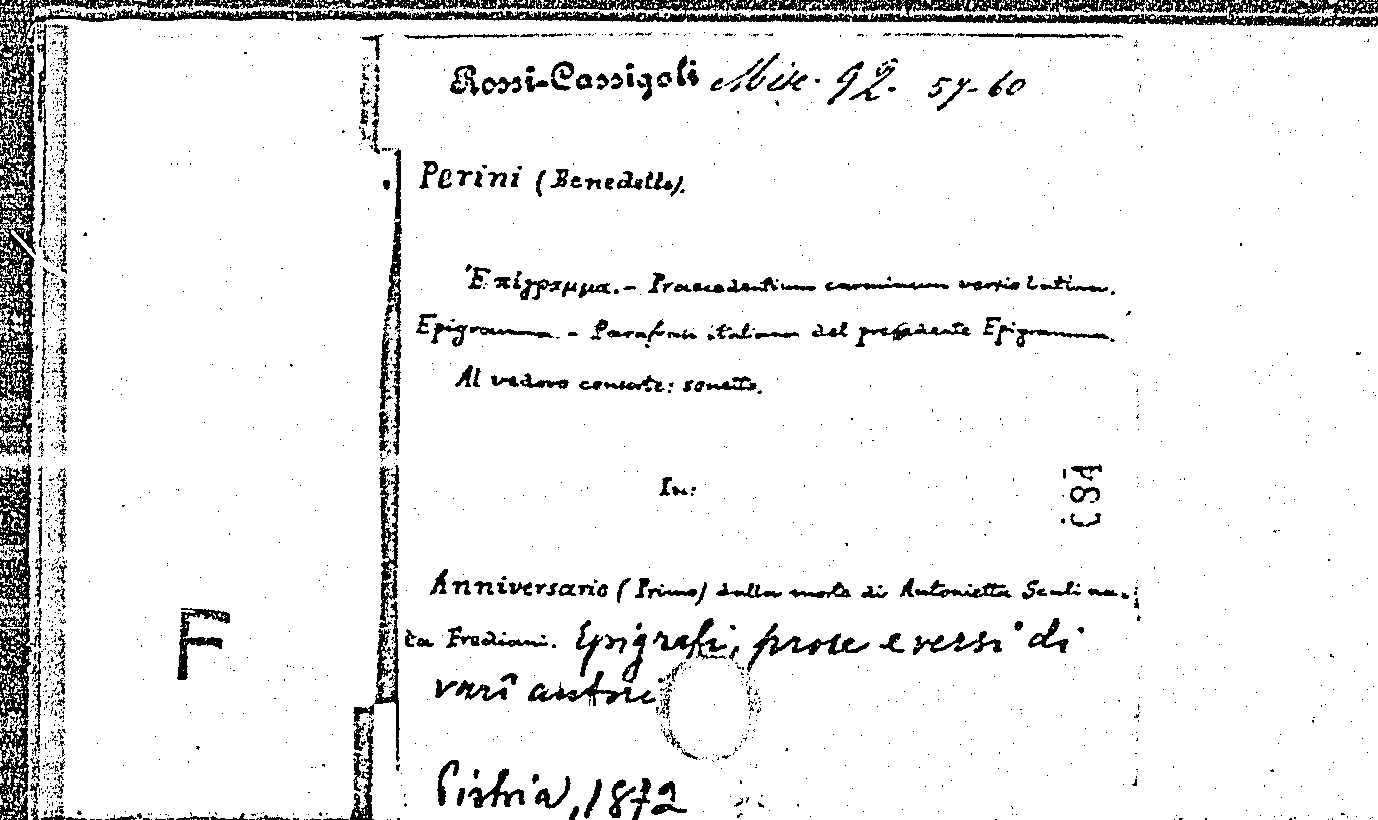 Rossi-Cassigoli Misc. 92. 57-60
Perini (Benedetto).
Ἐπίγραμμα. - Praecedentium carminum versio latina.
Epigramma. - Parafrasi italiana del precedente Epigramma.
Al vedovo consorte: sonetto.
In:
Anniversario (Primo) della morte di Antonietta
ta Frediani. Epigrafi, prose e versi di
varî autori
Pistoia, 1872
F